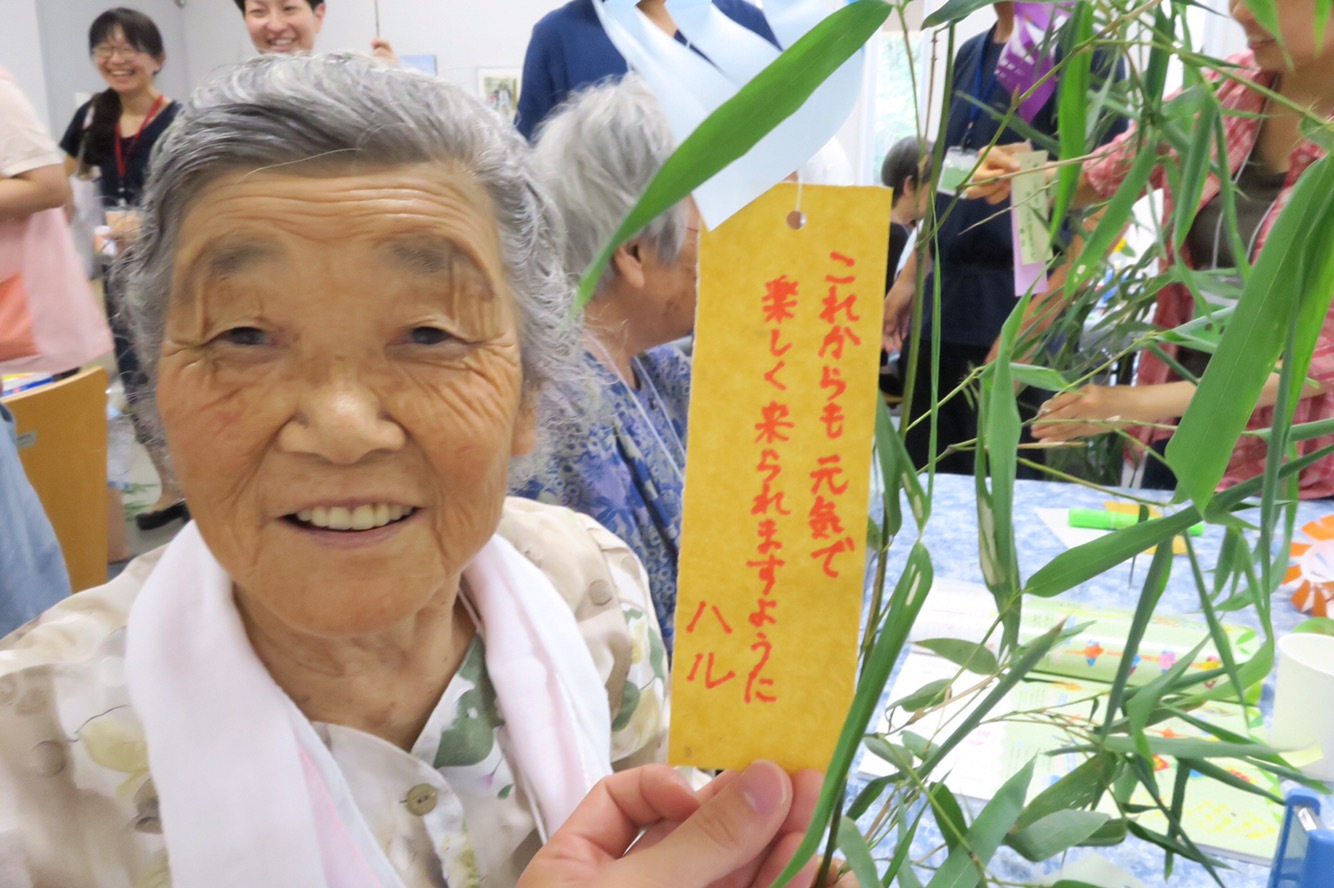 これからも 元気で
楽しく 来られますように
ハル